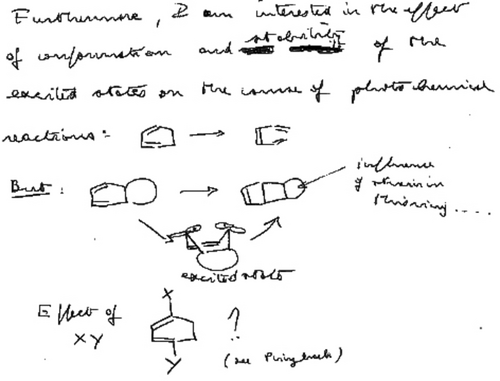 Furthermore, I am interested in the effect
of conformation and stability of the
excited states on the course of photochemical
reactions:
But:
influence
of strain in
this ring....
excited state
Effect of
XY
X
Y
?
(see